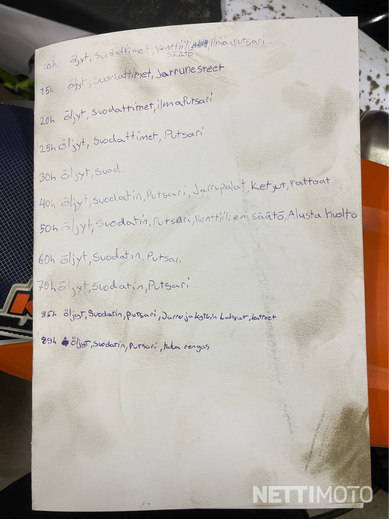 10h öljyt, Suodattimet, Venttiilien säätö, ilmanputsari
15h öljyt, Suodattimet, Jarrunesteet
20h öljyt, Suodattimet, ilmaputsari
25h öljyt, Suodattimet, Putsari
30h öljyt, Suod.
40h öljyt, suodatin, Putsari, Jarrupalat, Ketjut, rattaat
50h öljyt, Suodatin, Putsari, Venttiilien säätö, Alusta huolto
60h öljyt, Suodatin, Putsari
70h öljyt, Suodatin, Putsari
85h öljyt, Suodatin, Putsari, Jarru ja kytkin
öljyt, Suodatin, Putsari, taka rengas
NETTIMOTO